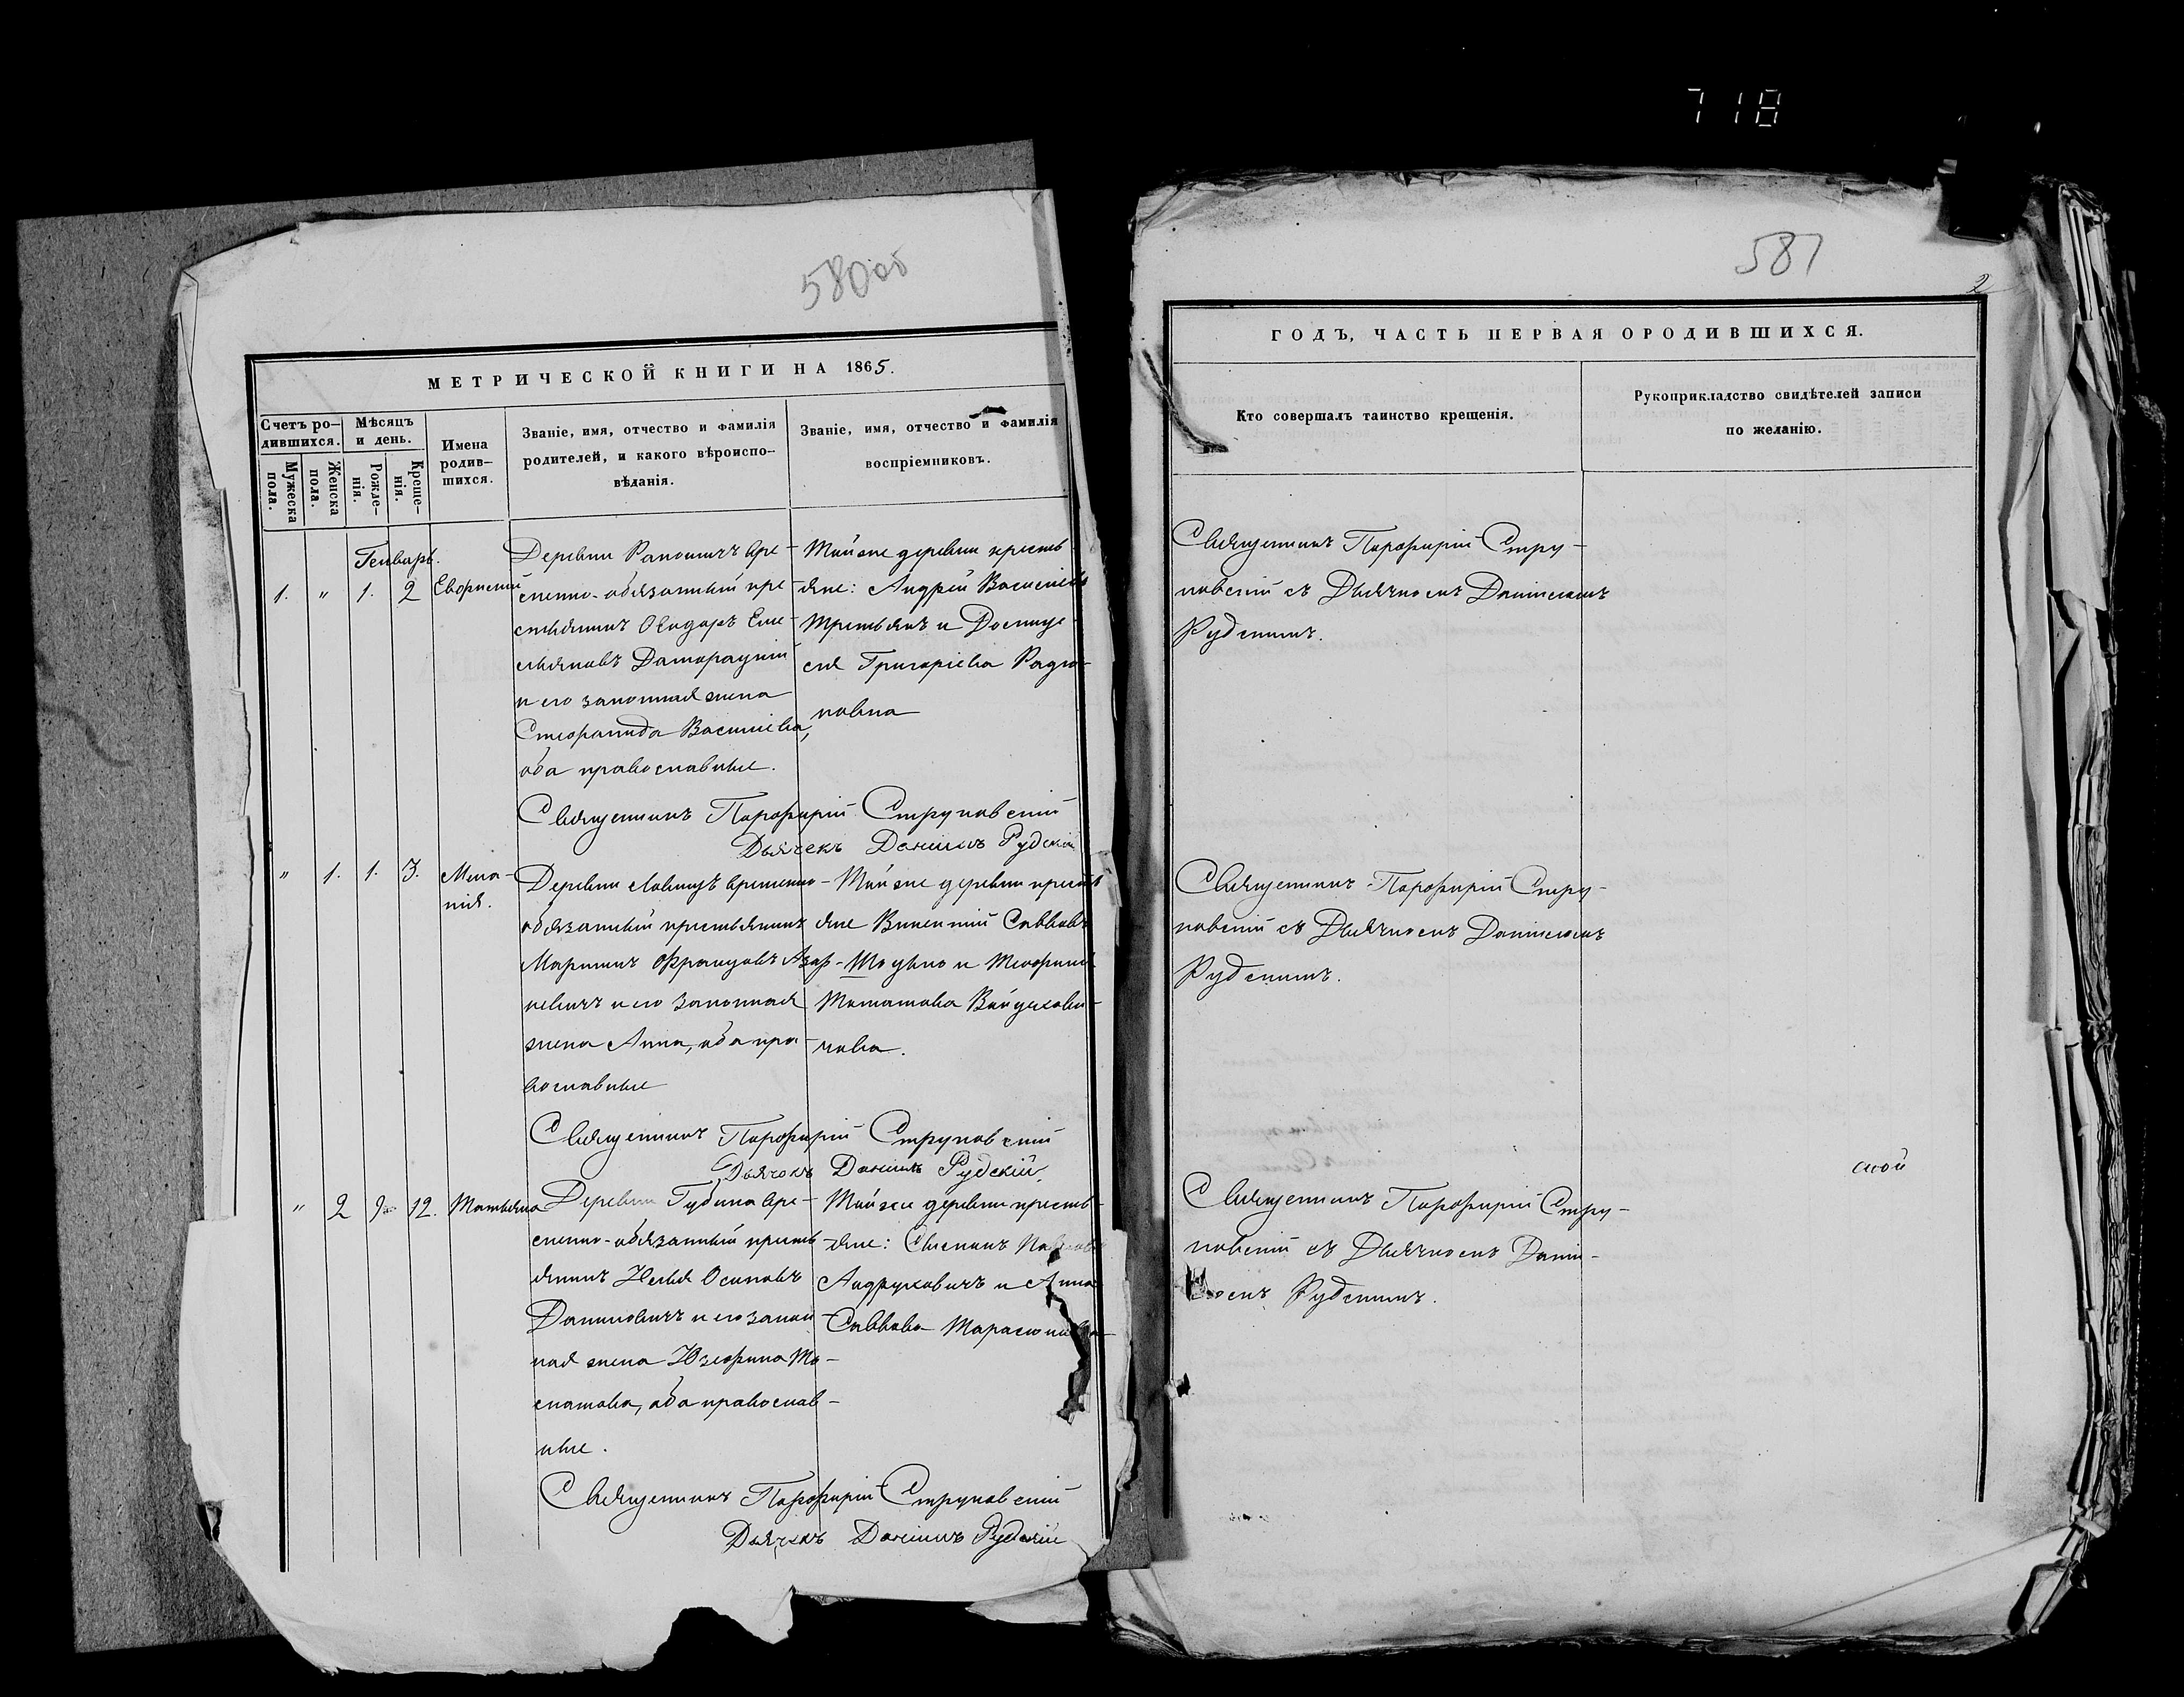 718
580об
МЕТРИЧЕСКОЙ КНИГИ НА 1865.
Счетъ ро-
дившихся.
Мужеска
пола.
Женска
пола.
Мѣсяцъ
и день.
Рожде-
нія.
Креще-
нія.
Имена
родив-
шихся.
Званіе, имя, отчество и фамилія
родителей, и какого вѣроиспо-
вѣданія.
Званіе, имя, отчество и фамилія
воспріемниковъ.
Генварь.
1. " 1. 2
Деревни вре-
менно-обязанный кре
стьянинъ Ѳеодоръ Еме-
льяновъ
и его законная жена
Василіева,
оба православные.
Той же деревни кресть
яне: Андрей Василіевъ
Третьякъ и
Григоріева Радіо-
новна
Священникъ Порфирій Струковскій
Дьячекъ Даніилъ Рудскій
" 1. 1. 3.
Мела-
нія.
Деревни временно-
обязанный крестьянинъ
Мартинъ Францовъ Азар-
кевичъ и его законная
жена Анна, оба пра-
вославные
Той же деревни кресть
яне Викентій Савковъ
и
чова.
Священникъ Порфирій Струковскій
Дьячокъ Даніилъ Рудскій
" 2 12. Татьяна
Деревни Губина вре-
менно-обязанный кресть
янинъ Илья Осиповъ
Даниловичъ и его закон
ная жена Юзефина
оба православ-
ные.
Той же деревни кресть
яне:
Андруковичъ и Анна
Саввова
Священникъ Порфирій Струковскій
Дьячекъ Даніилъ Рудскій
581
2
ГОДЪ, ЧАСТЬ ПЕРВАЯ ОРОДИВШИХСЯ.
Кто совершалъ таинство крещенія.
Рукоприкладство свидѣтелей записи
по желанію.
Священникъ Порфирій Стру-
ковскій съ Дьячкомъ Даніиломъ
Рудскимъ.
Священникъ Порфирій Стру-
ковскій съ Дьячкомъ Даніиломъ
Рудскимъ.
Священникъ Порфирій Стру-
ковскій съ Дьячкомъ Дані-
ломъ Рудскимъ.